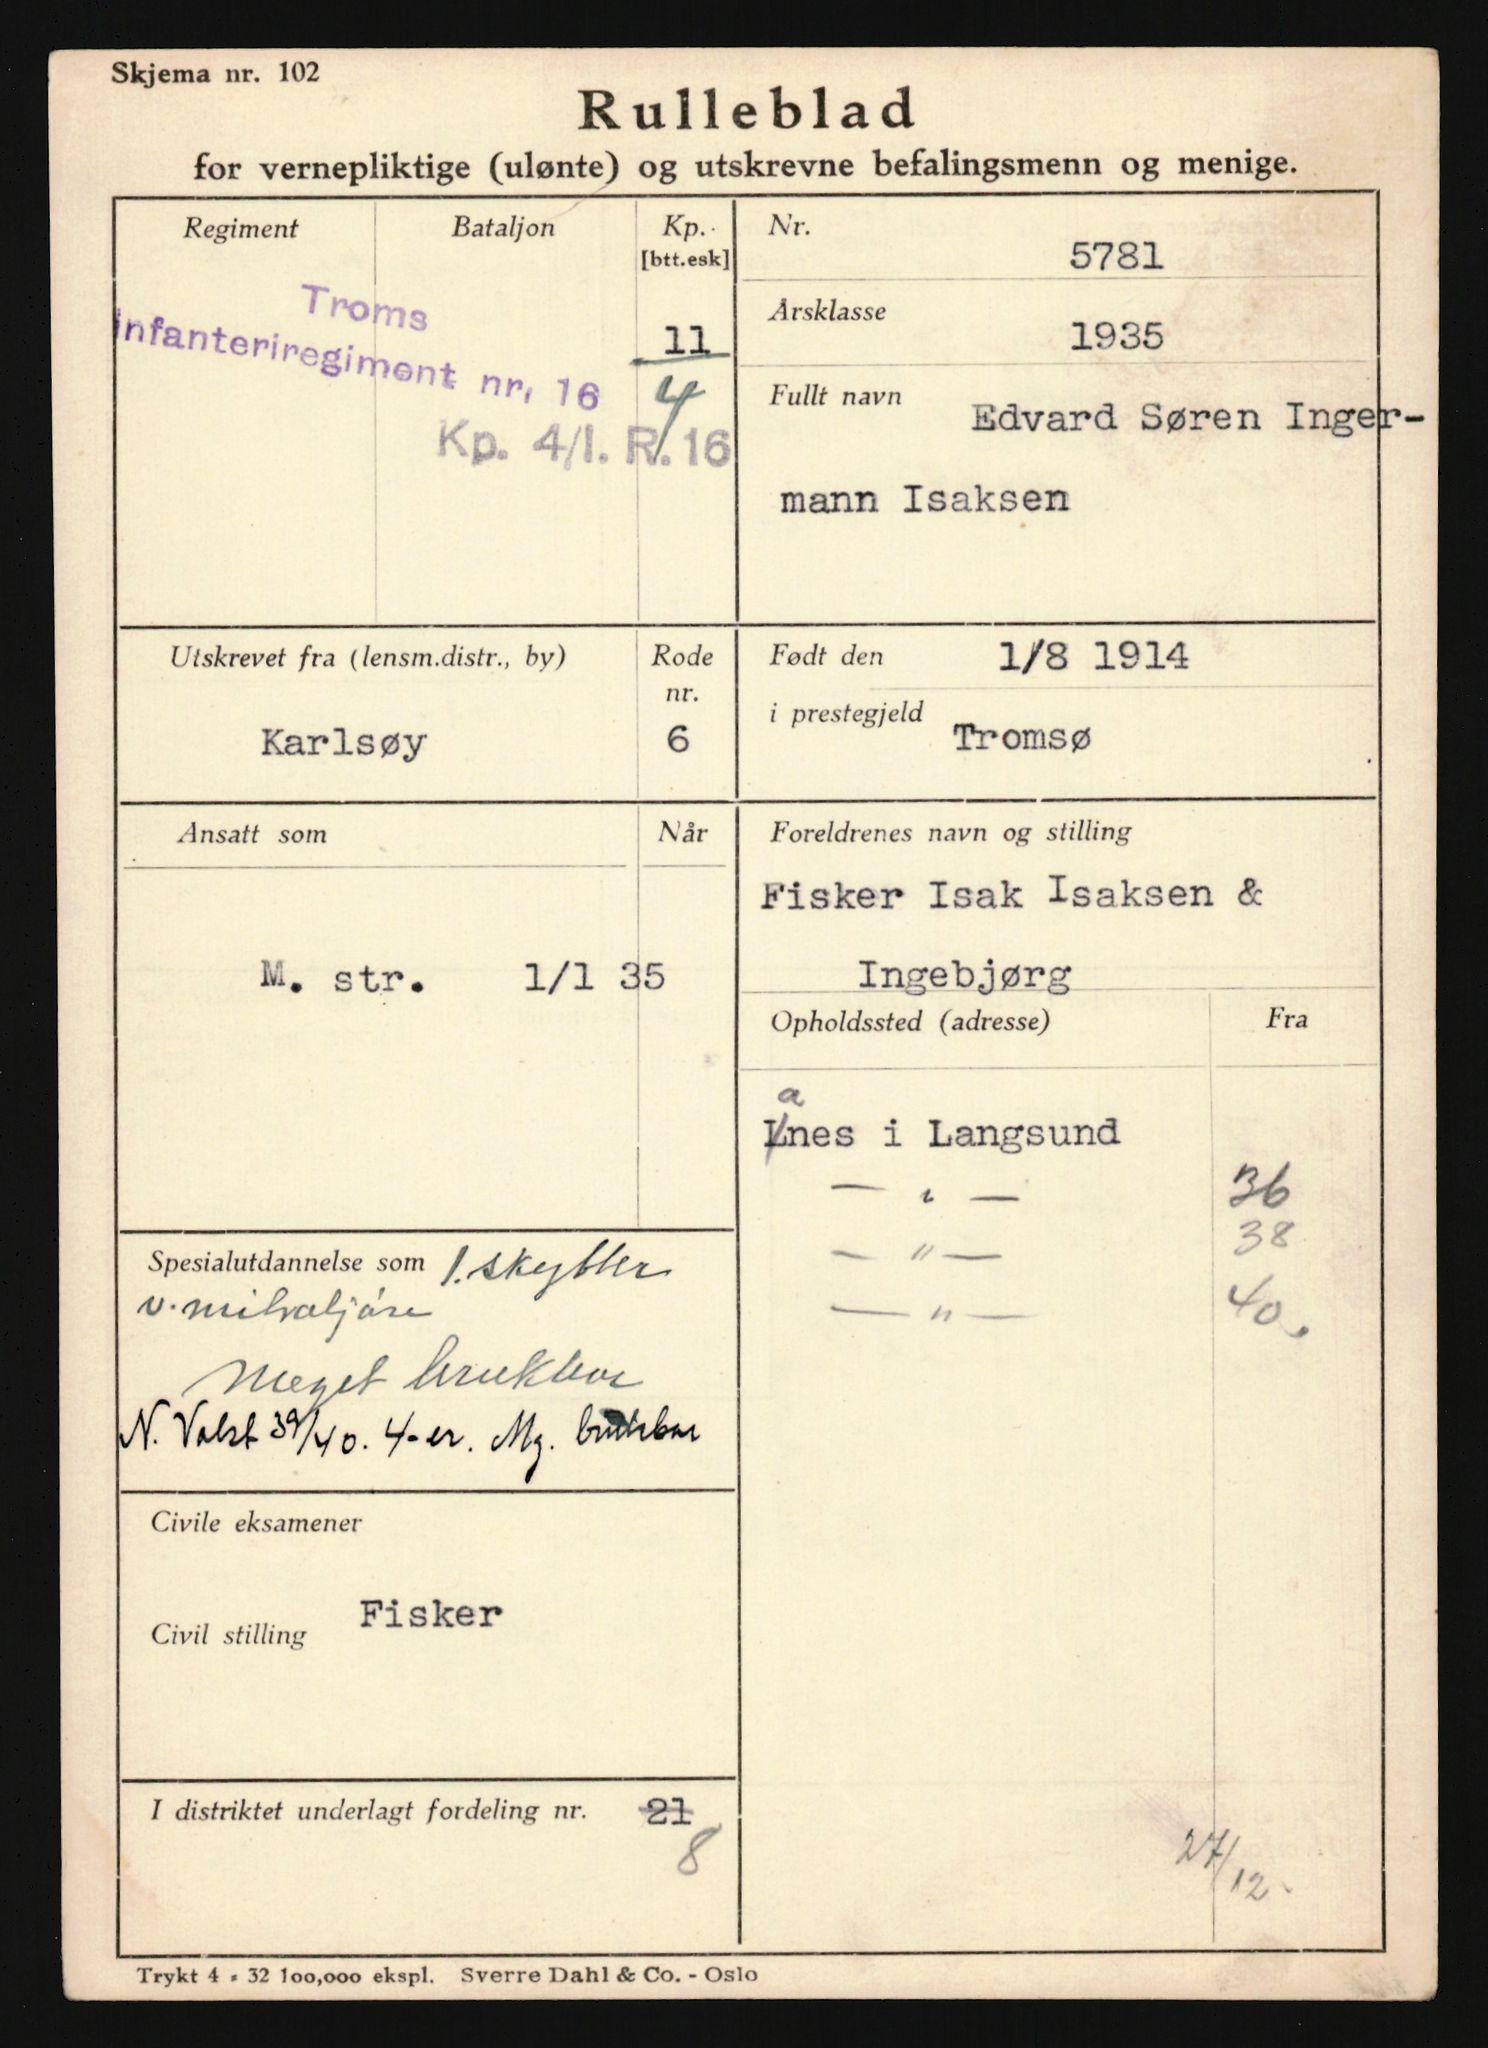 Skjema nr. 102
Rulleblad
for vernepliktige (ulønte) og utskrevne befalingsmenn og menige.
Regiment
Bataljon
Kp.
[btt.esk]
Troms
infanteriregiment nr. 16
11
4
Kp. 4/I. R. 16
Nr.
5781
Årsklasse
1935
Fullt navn
Edvard Søren Inger-
mann Isaksen
Utskrevet fra (lensm.distr., by)
Rode
nr.
Karlsøy
6
Født den
1/8 1914
i prestegjeld
Tromsø
Ansatt som
Når
M. str.
1/1 35
Foreldrenes navn og stilling
Fisker Isak Isaksen &
Ingebjørg
Opholdssted (adresse)
Fra
a
Lnes i Langsund
— " — 36
— " — 38
— " — 40.
Spesialutdannelse som 1. skytter
v. mitraljøse
Meget brukbar
N. Vakt 39/40. 4-er. Mg. brukbar
Civile eksamener
Civil stilling
Fisker
I distriktet underlagt fordeling nr.
21
8
27/12.
Trykt 4 - 32 100,000 ekspl. Sverre Dahl & Co. - Oslo